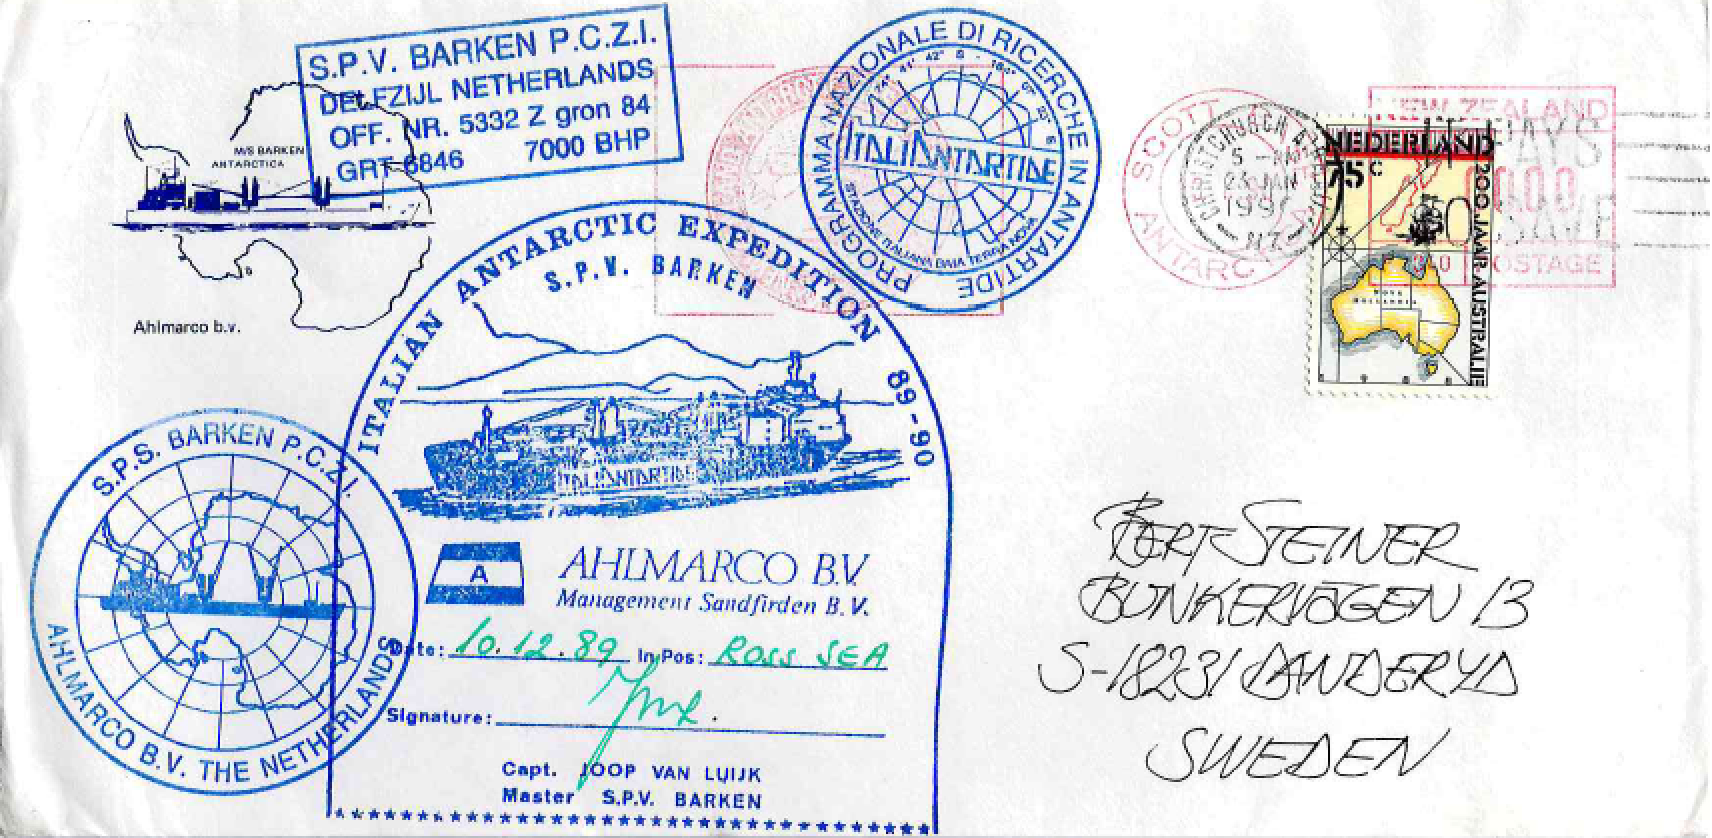 S.P.V. BARKEN P.C.Z.I.
DELFZIJL NETHERLANDS
OFF. NR. 5332 Z gron 84
GRT 6846 7000 BHP
M/S BARKEN
ANTARCTICA
Ahlmarco b.v.
PROGRAMMA NAZIONALE DI RICERCHE IN ANTARTIDE
ITALIANTARTIDE
STAZIONE ITALIANA BAIA TERRA NOVA
SCOTT
ANTARC
CHRISTCHURCH
23 JAN
199
NZ
NEDERLAND
75c
200 JAAR AUSTRALIE
NOVA
HOLLANDIA
NEW ZEALAND
POSTAGE
ITALIAN ANTARCTIC EXPEDITION 89-90
S.P.V. BARKEN
ITALIANTARTIDE
A
AHLMARCO B.V.
Management Sandfirden B.V.
Date: 10.12.89 In Pos: ROSS SEA
Signature:
Capt. JOOP VAN LUIJK
Master S.P.V. BARKEN
S.P.S. BARKEN P.C.Z.I.
AHLMARCO B.V. THE NETHERLANDS
BERT STEINER
BUNKERVÄGEN 13
S-18231 DANDERYD
SWEDEN